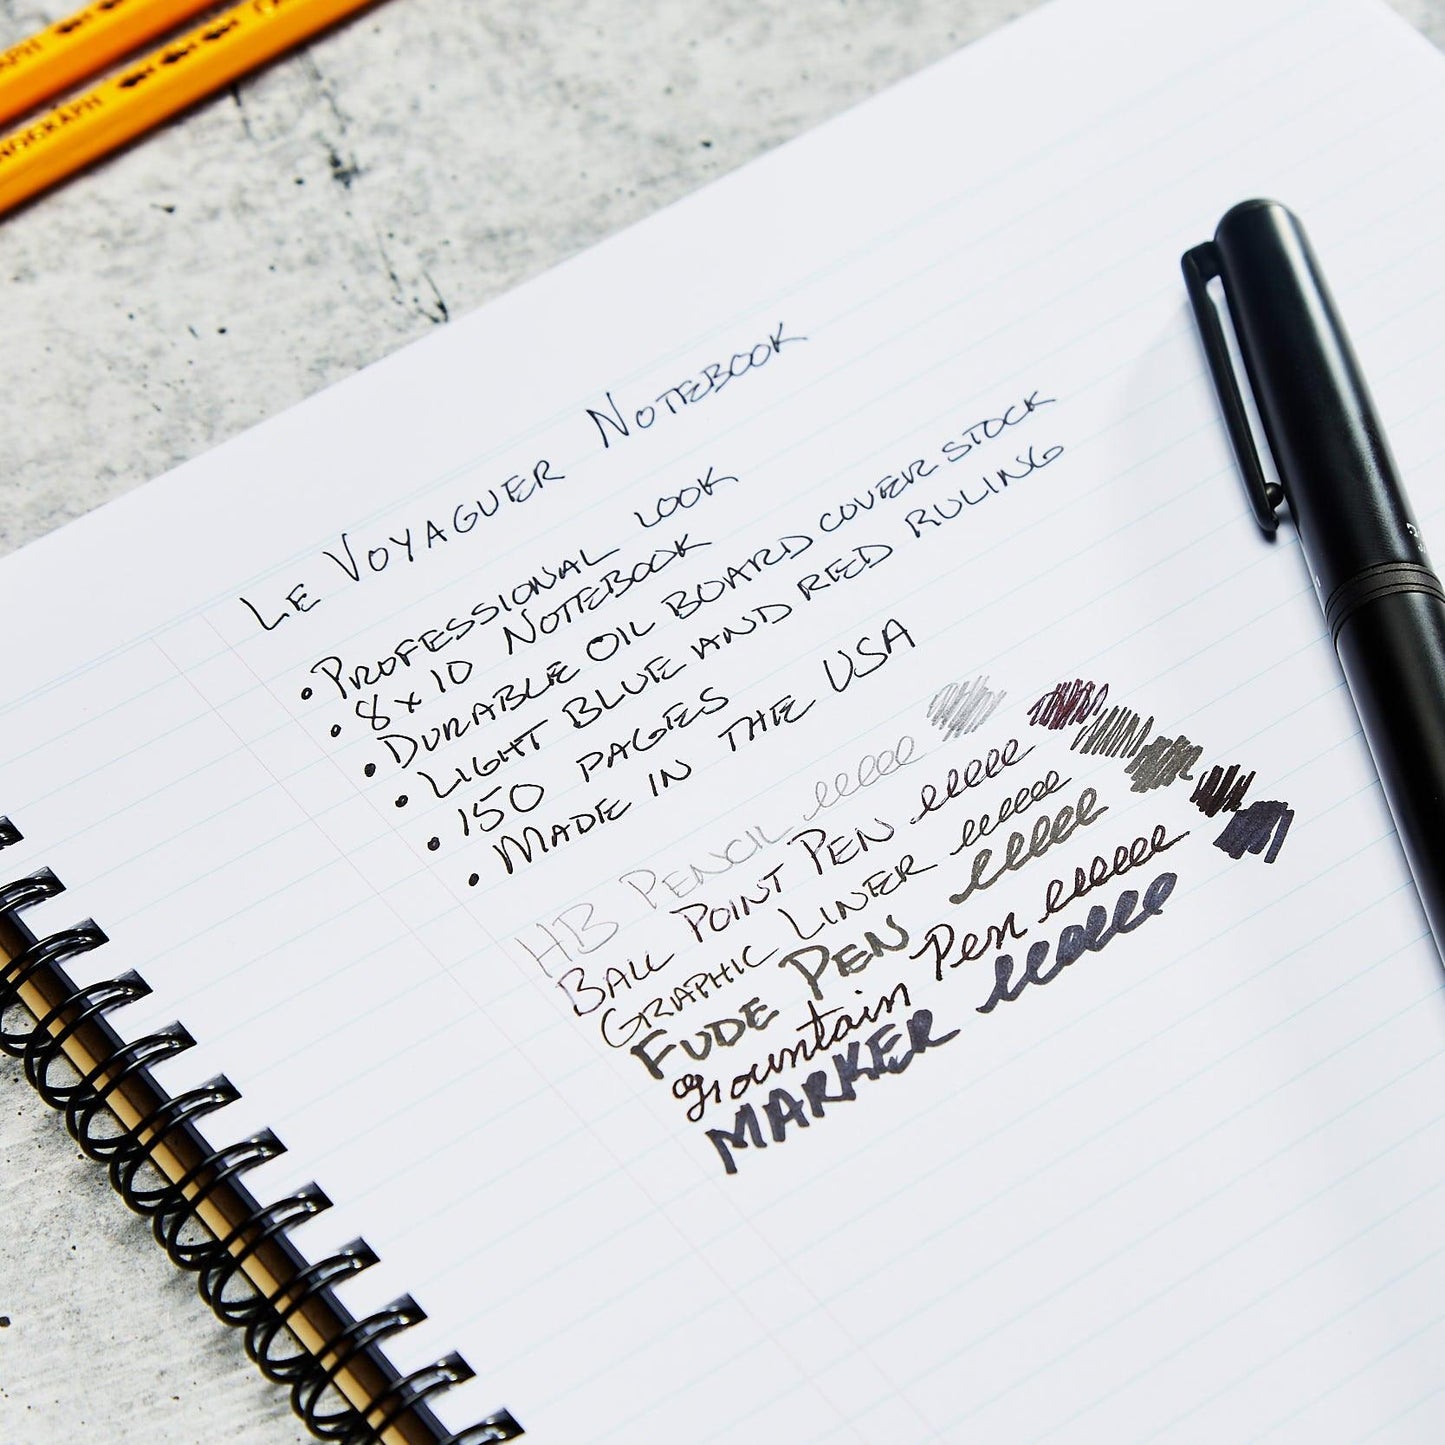 LE VOYAGUER NOTEBOOK
• PROFESSIONAL LOOK
• 8x10 NOTEBOOK
• DURABLE OIL BOARD COVER STOCK
• LIGHT BLUE AND RED RULING
• 150 PAGES
• MADE IN THE USA
HB PENCIL
BALL POINT PEN
GRAPHIC LINER
FUDE PEN
Fountain Pen
MARKER